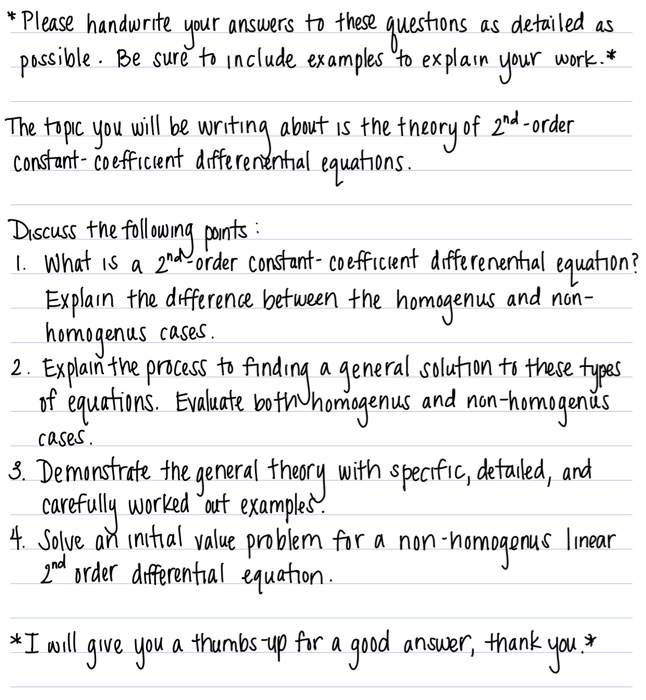 *Please handwrite your answers to these questions as detailed as
possible. Be sure to include examples to explain your work.*
The topic you will be writing about is the theory of 2nd-order
constant-coefficient differenential equations.
Discuss the following points:
1. What is a 2nd-order constant-coefficient differenential equation?
Explain the difference between the homogenus and non-
homogenus cases.
2. Explain the process to finding a general solution to these types
of equations. Evaluate both homogenus and non-homogenus
cases.
3. Demonstrate the general theory with specific, detailed, and
carefully worked out examples.
4. Solve an initial value problem for a non-homogenus linear
2nd order differential equation.
*I will give you a thumbs-up for a good answer, thank you.*